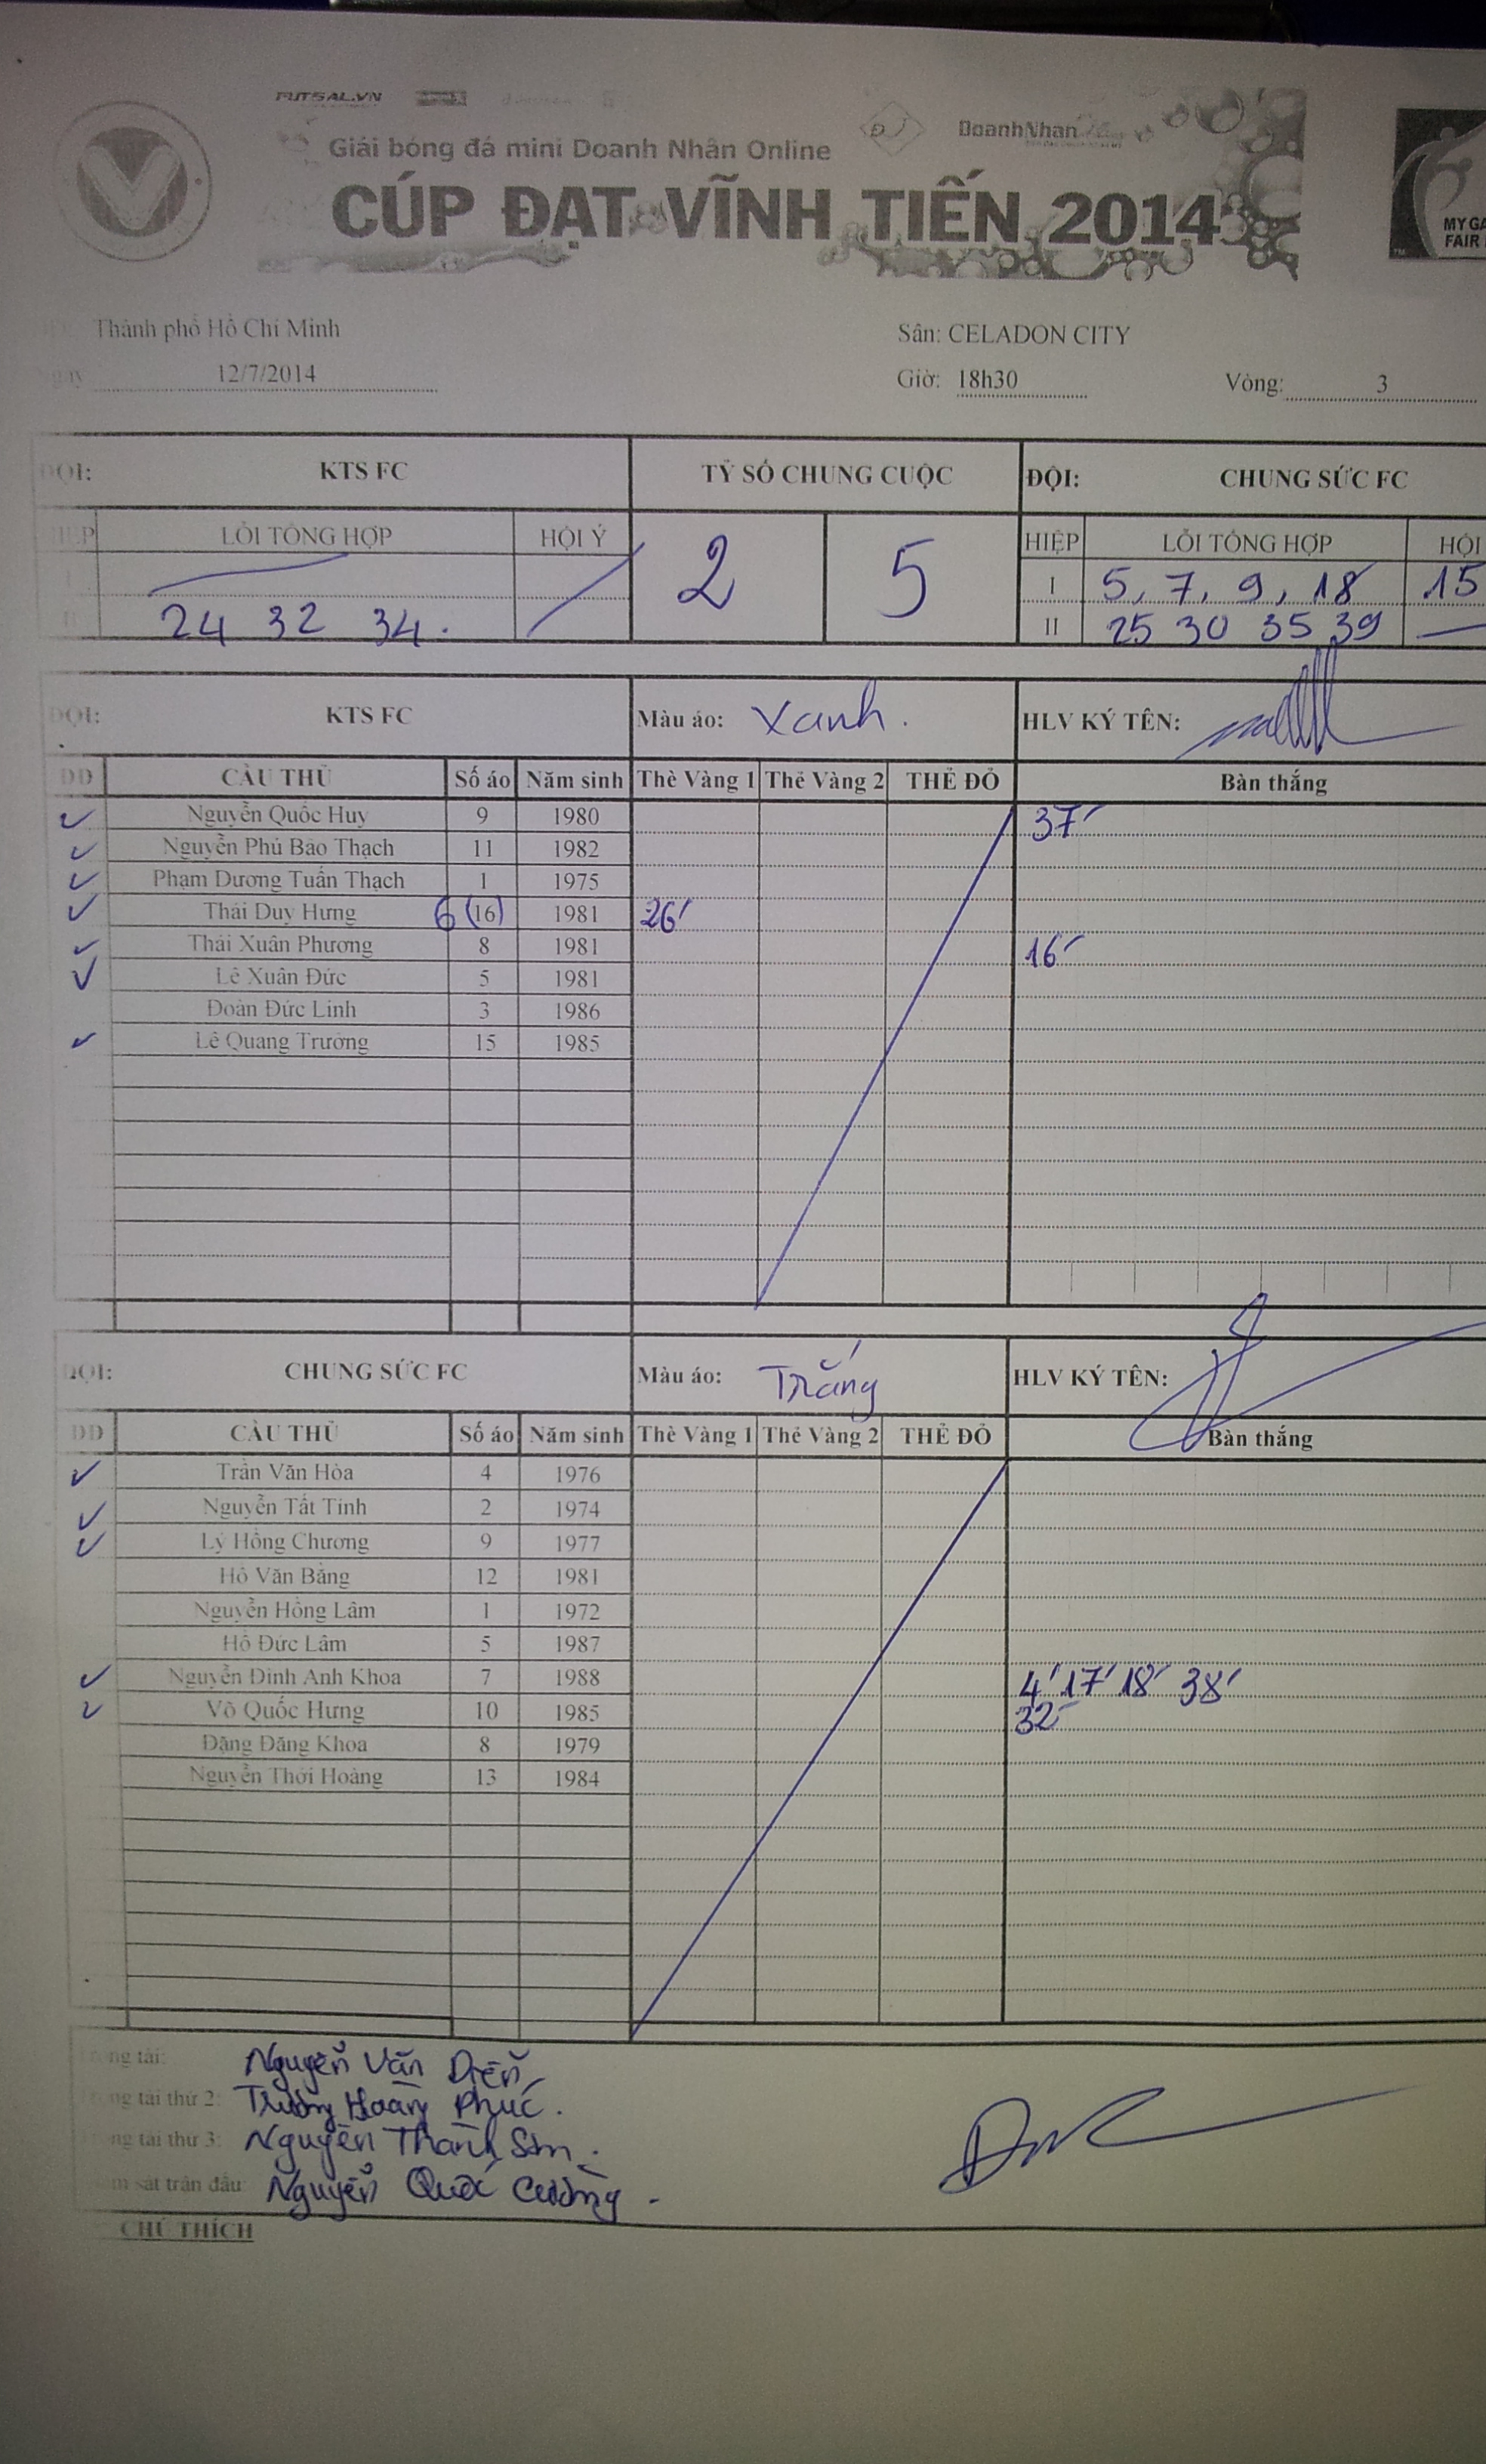 FUTSAL.VN
Giải bóng đá mini Doanh Nhân Online DoanhNhan
CÚP ĐẠT VĨNH TIẾN 2014
MY GA
FAIR
Thành phố Hồ Chí Minh Sân: CELADON CITY
12/7/2014 Giờ: 18h30 Vòng: 3
ĐỘI: KTS FC TỶ SỐ CHUNG CUỘC ĐỘI: CHUNG SỨC FC
LỖI TỔNG HỢP HỘI Ý 2 5 HIỆP LỖI TỔNG HỢP HỘI
I 5, 7, 9, 18 15
24 32 34. II 25 30 35 39
ĐỘI: KTS FC Màu áo: Xanh. HLV KÝ TÊN:
DD CẦU THỦ Số áo Năm sinh Thẻ Vàng 1 Thẻ Vàng 2 THẺ ĐỎ Bàn thắng
Nguyễn Quốc Huy 9 1980 37'
Nguyễn Phú Bảo Thạch 11 1982
Phạm Dương Tuấn Thạch 1 1975
Thái Duy Hưng 6 (16) 1981 26'
Thái Xuân Phương 8 1981 16'
Lê Xuân Đức 5 1981
Đoàn Đức Linh 3 1986
Lê Quang Trưởng 15 1985
ĐỘI: CHUNG SỨC FC Màu áo: Trắng HLV KÝ TÊN:
DD CẦU THỦ Số áo Năm sinh Thẻ Vàng 1 Thẻ Vàng 2 THẺ ĐỎ Bàn thắng
Trần Văn Hòa 4 1976
Nguyễn Tất Tính 2 1974
Lý Hồng Chương 9 1977
Hồ Văn Bằng 12 1981
Nguyễn Hồng Lâm 1 1972
Hồ Đức Lâm 5 1987
Nguyễn Đình Anh Khoa 7 1988 4' 17' 18' 38'
Võ Quốc Hưng 10 1985 32'
Đặng Đăng Khoa 8 1979
Nguyễn Thới Hoàng 13 1984
tài: Nguyễn Văn Diễn
tài thứ 2: Trương Hoàng Phúc.
tài thứ 3: Nguyễn Thành Sơn.
sát trận đấu: Nguyễn Quốc Cường.
CHÚ THÍCH